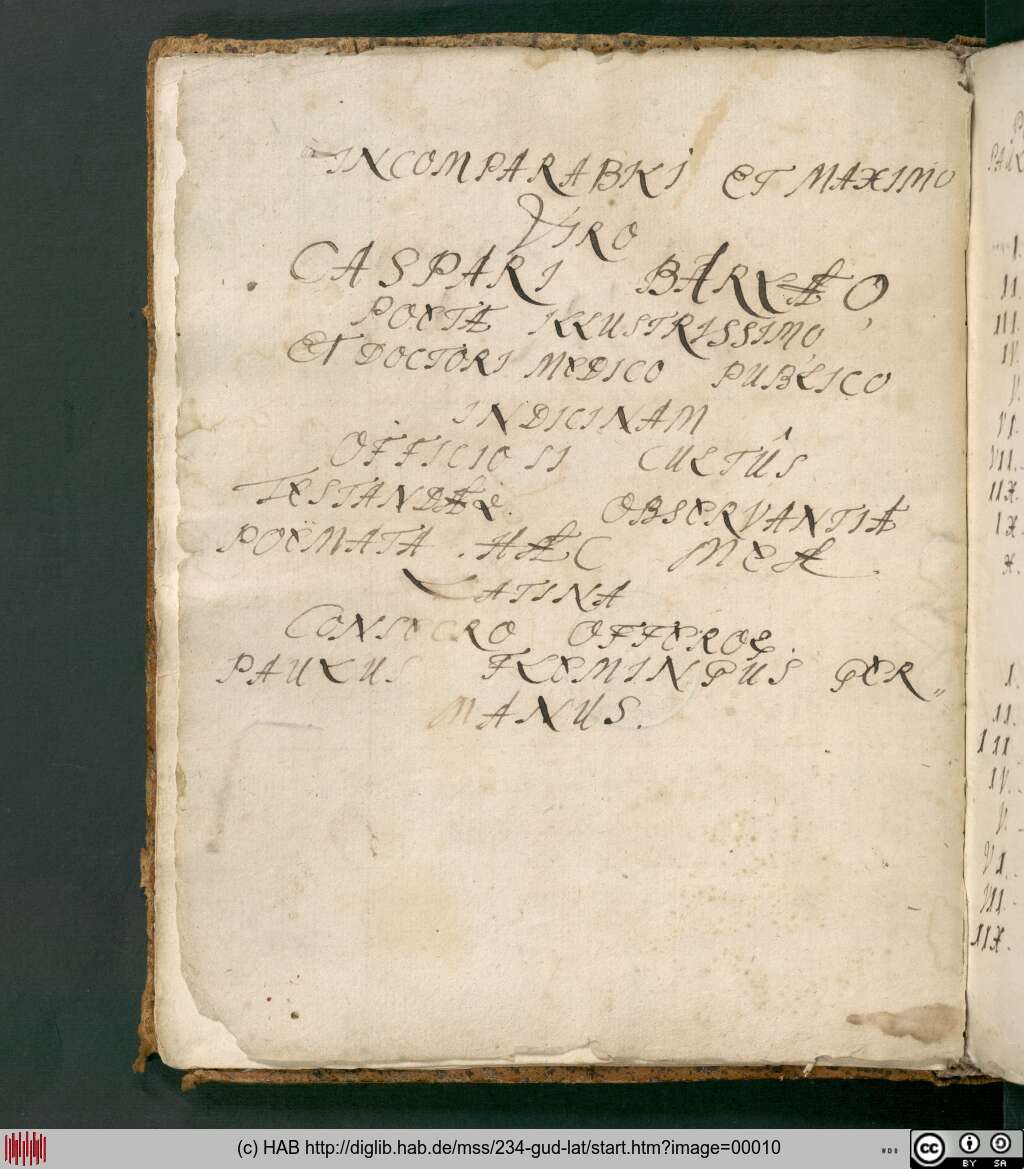 INCOMPARABILI ET MAXIMO
VIRO
CASPARI BARLÆO,
POETÆ ILLUSTRISSIMO
ET DOCTORI MEDICO PUBLICO
INDICINAM
OFFICIOSI CULTÛS
TESTANDÆQ. OBSERVANTIÆ
POËMATA HÆC MEA
LATINA
CONSECRO OFFEROQ.
PAULUS FLEMINGUS GER„
MANUS.
I.
II.
III.
IV.
V.
VI.
VII.
IIX.
IX.
X.
I.
II.
III
IV.
V.
VI.
VII.
IIX.
(c) HAB http://diglib.hab.de/mss/234-gud-lat/start.htm?image=00010
WDB
cc
BY SA